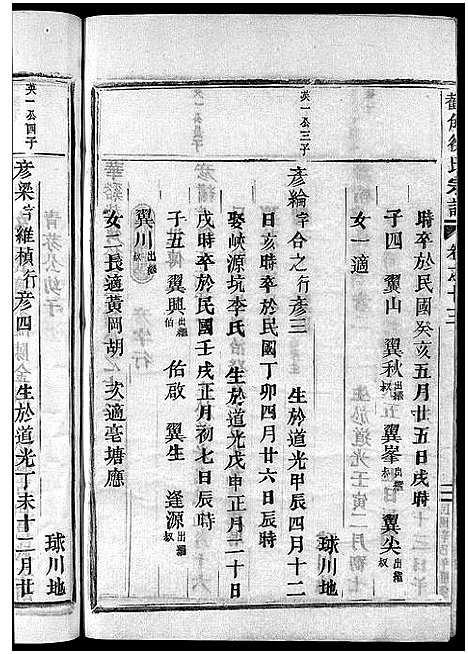 時卒於民國癸亥五月廿五日戌時
子四 翼山 翼秋出繼叔 翼峯出繼叔 翼尖出繼叔
女一適
球川地
英一公三子
彥綸字合之行彥三 生於道光甲辰四月十二
日亥時卒於民國丁卯四月廿六日辰時
娶峽源坑李氏 生於道光戊申正月二十日
戌時卒於民國壬戌正月初七日辰時
子五 翼興出繼伯 佑啟 翼生 逢源出繼叔
翼川出繼叔
女二長適黃岡胡 次適亳塘應
球川地
英一公四子
彥梁字維楨行彥四 生於道光丁未十二月廿